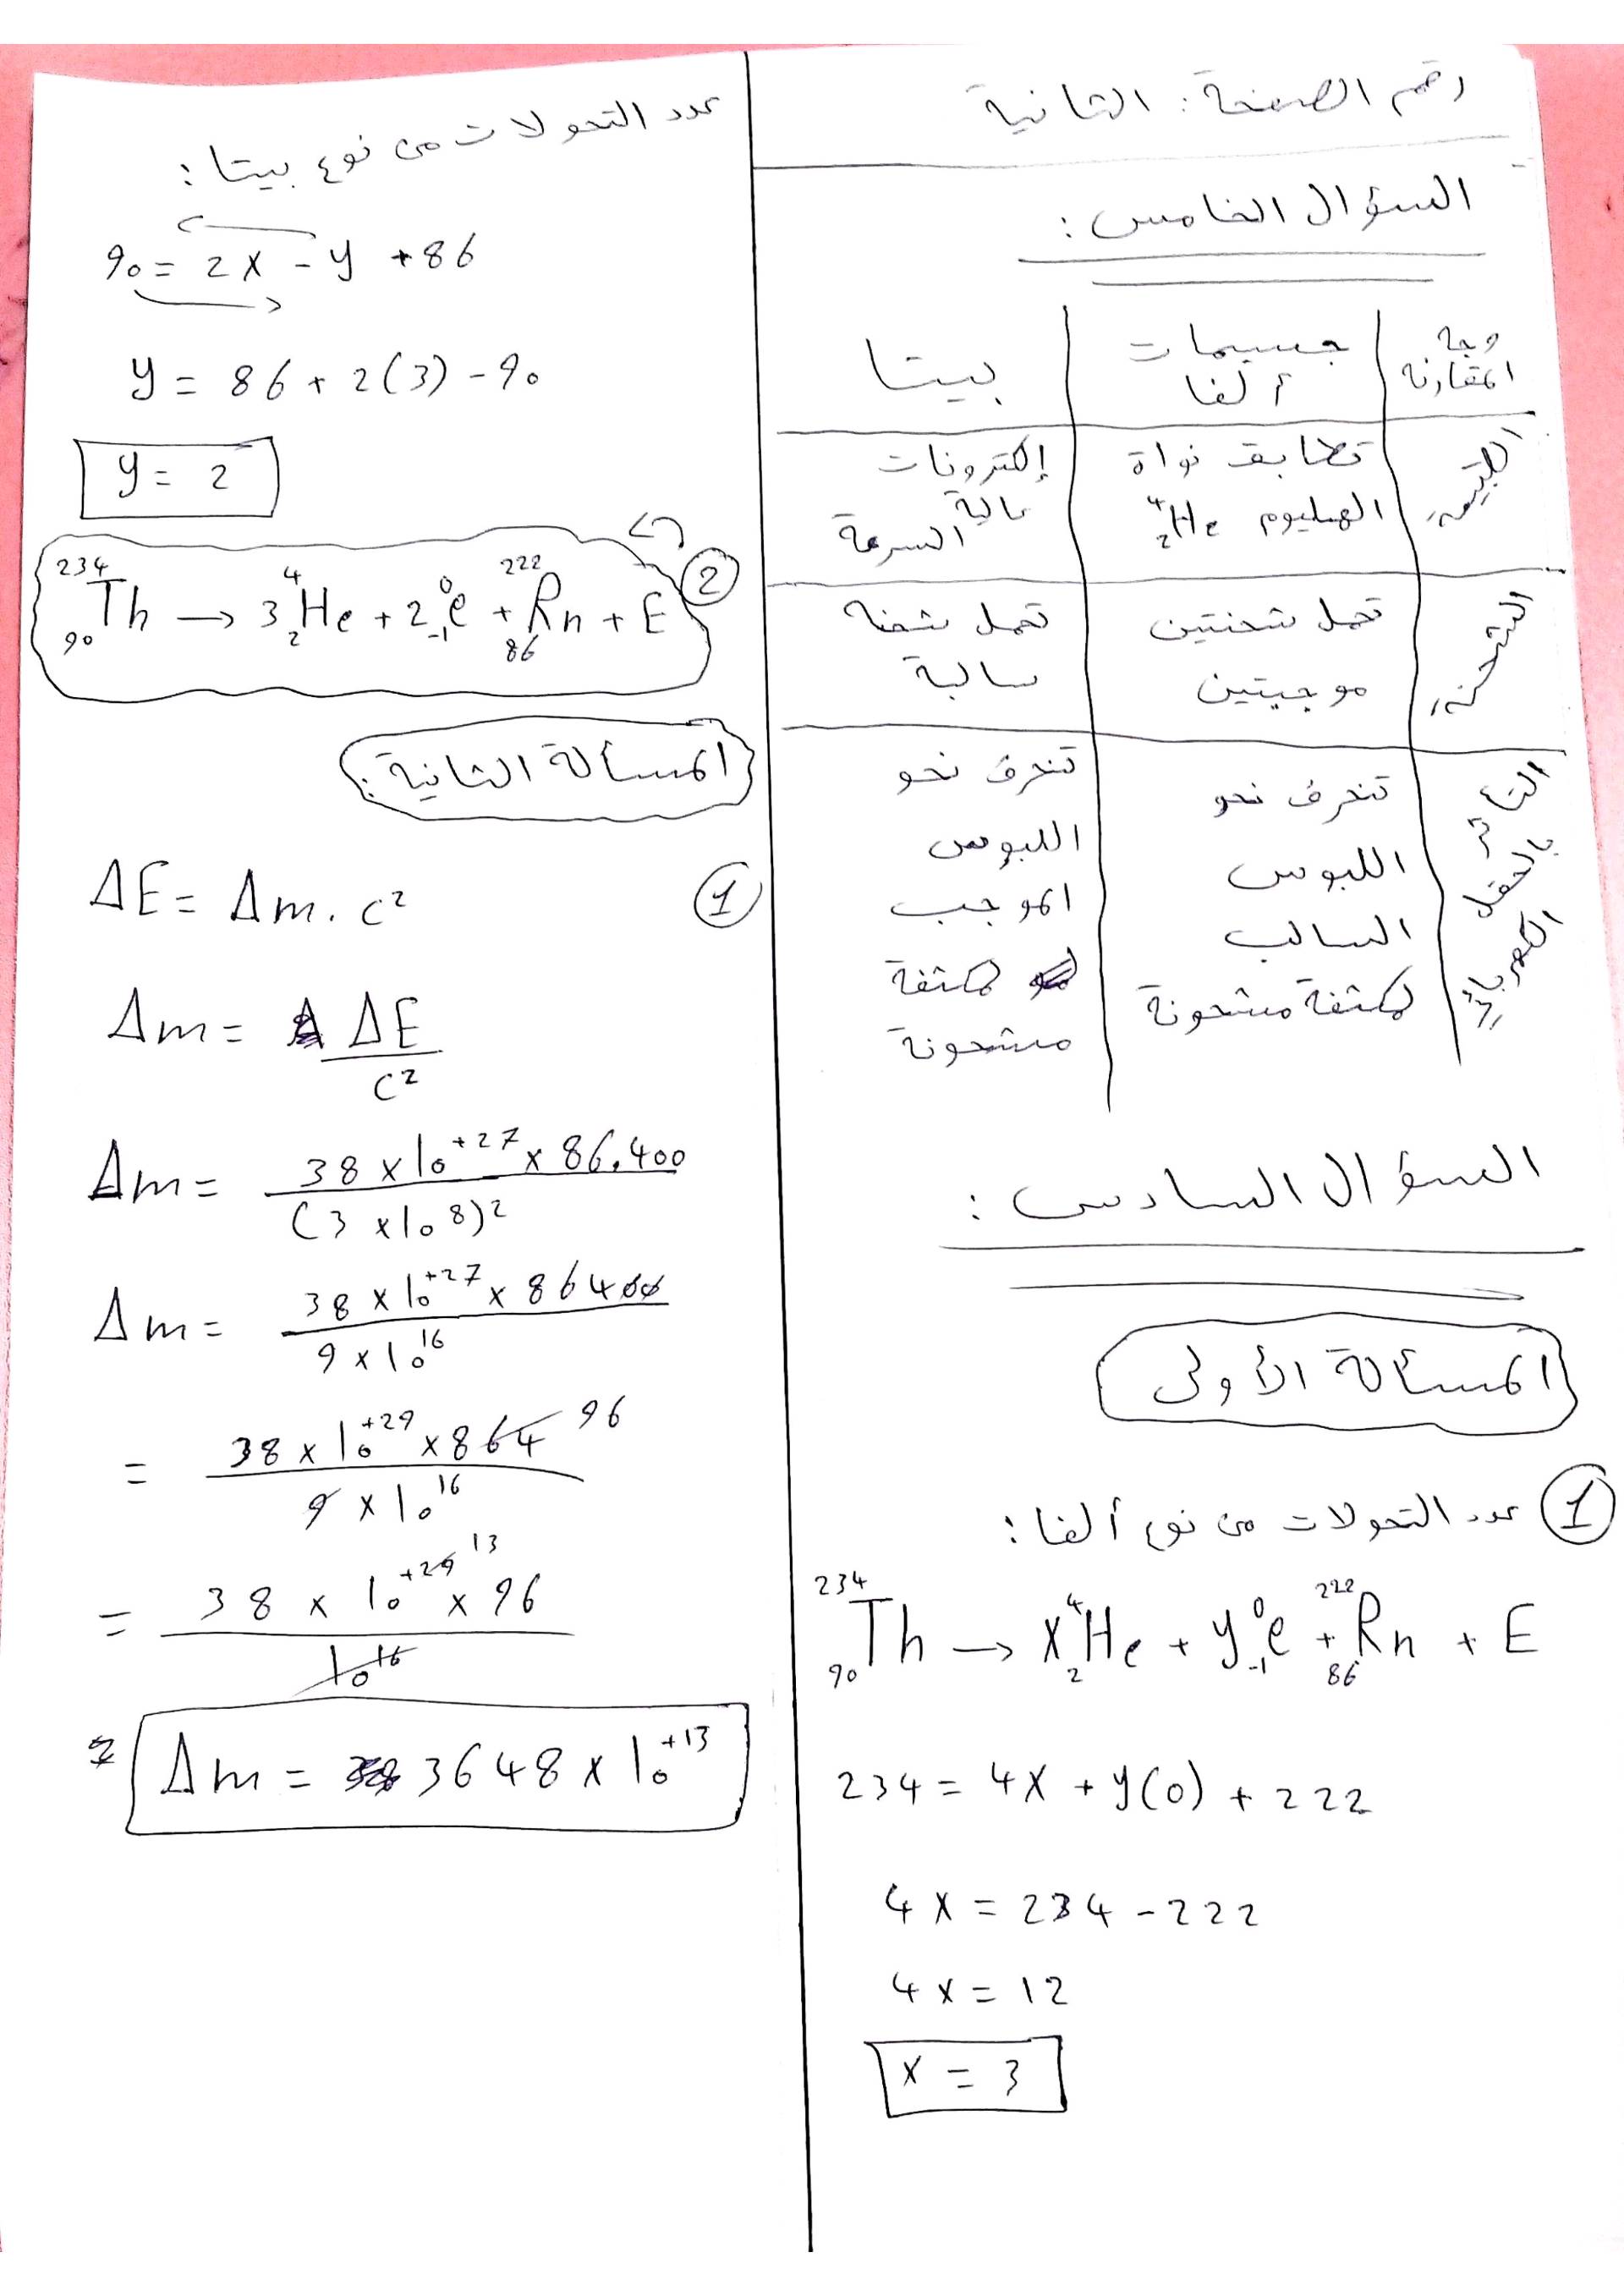 رقم الصفحة: الثانية
السؤال الخامس:
وجه المقارنة | جسيمات ألفا | بيتا
الطبيعة | تطابق نواة الهيليوم ⁴₂He | إلكترونات عالية السرعة
الشحنة | تحمل شحنتين موجبتين | تحمل شحنة سالبة
التأثر بالحقل الكهربائي | تنحرف نحو اللبوس السالب لمكثفة مشحونة | تنحرف نحو اللبوس الموجب لمكثفة مشحونة
السؤال السادس:
المسألة الأولى
① عدد التحولات من نوع ألفا:
²³⁴₉₀Th → X ⁴₂He + y ⁰₋₁e + ²²²₈₆Rn + E
234 = 4X + y(0) + 222
4X = 234 - 222
4X = 12
X = 3
عدد التحولات من نوع بيتا:
90 = 2X - y + 86
y = 86 + 2(3) - 90
y = 2
② ²³⁴₉₀Th → 3 ⁴₂He + 2 ⁰₋₁e + ²²²₈₆Rn + E
المسألة الثانية:
① ΔE = Δm . c²
Δm = ΔE / c²
Δm = 38 × 10⁺²⁷ × 86.400 / (3 × 10⁸)²
Δm = 38 × 10⁺²⁷ × 86400 / 9 × 10¹⁶
= 38 × 10⁺²⁹ × 864 96 / 9 × 10¹⁶
= 38 × 10⁺²⁹ ¹³ × 96 / 10¹⁶
Δm = 3648 × 10⁺¹³